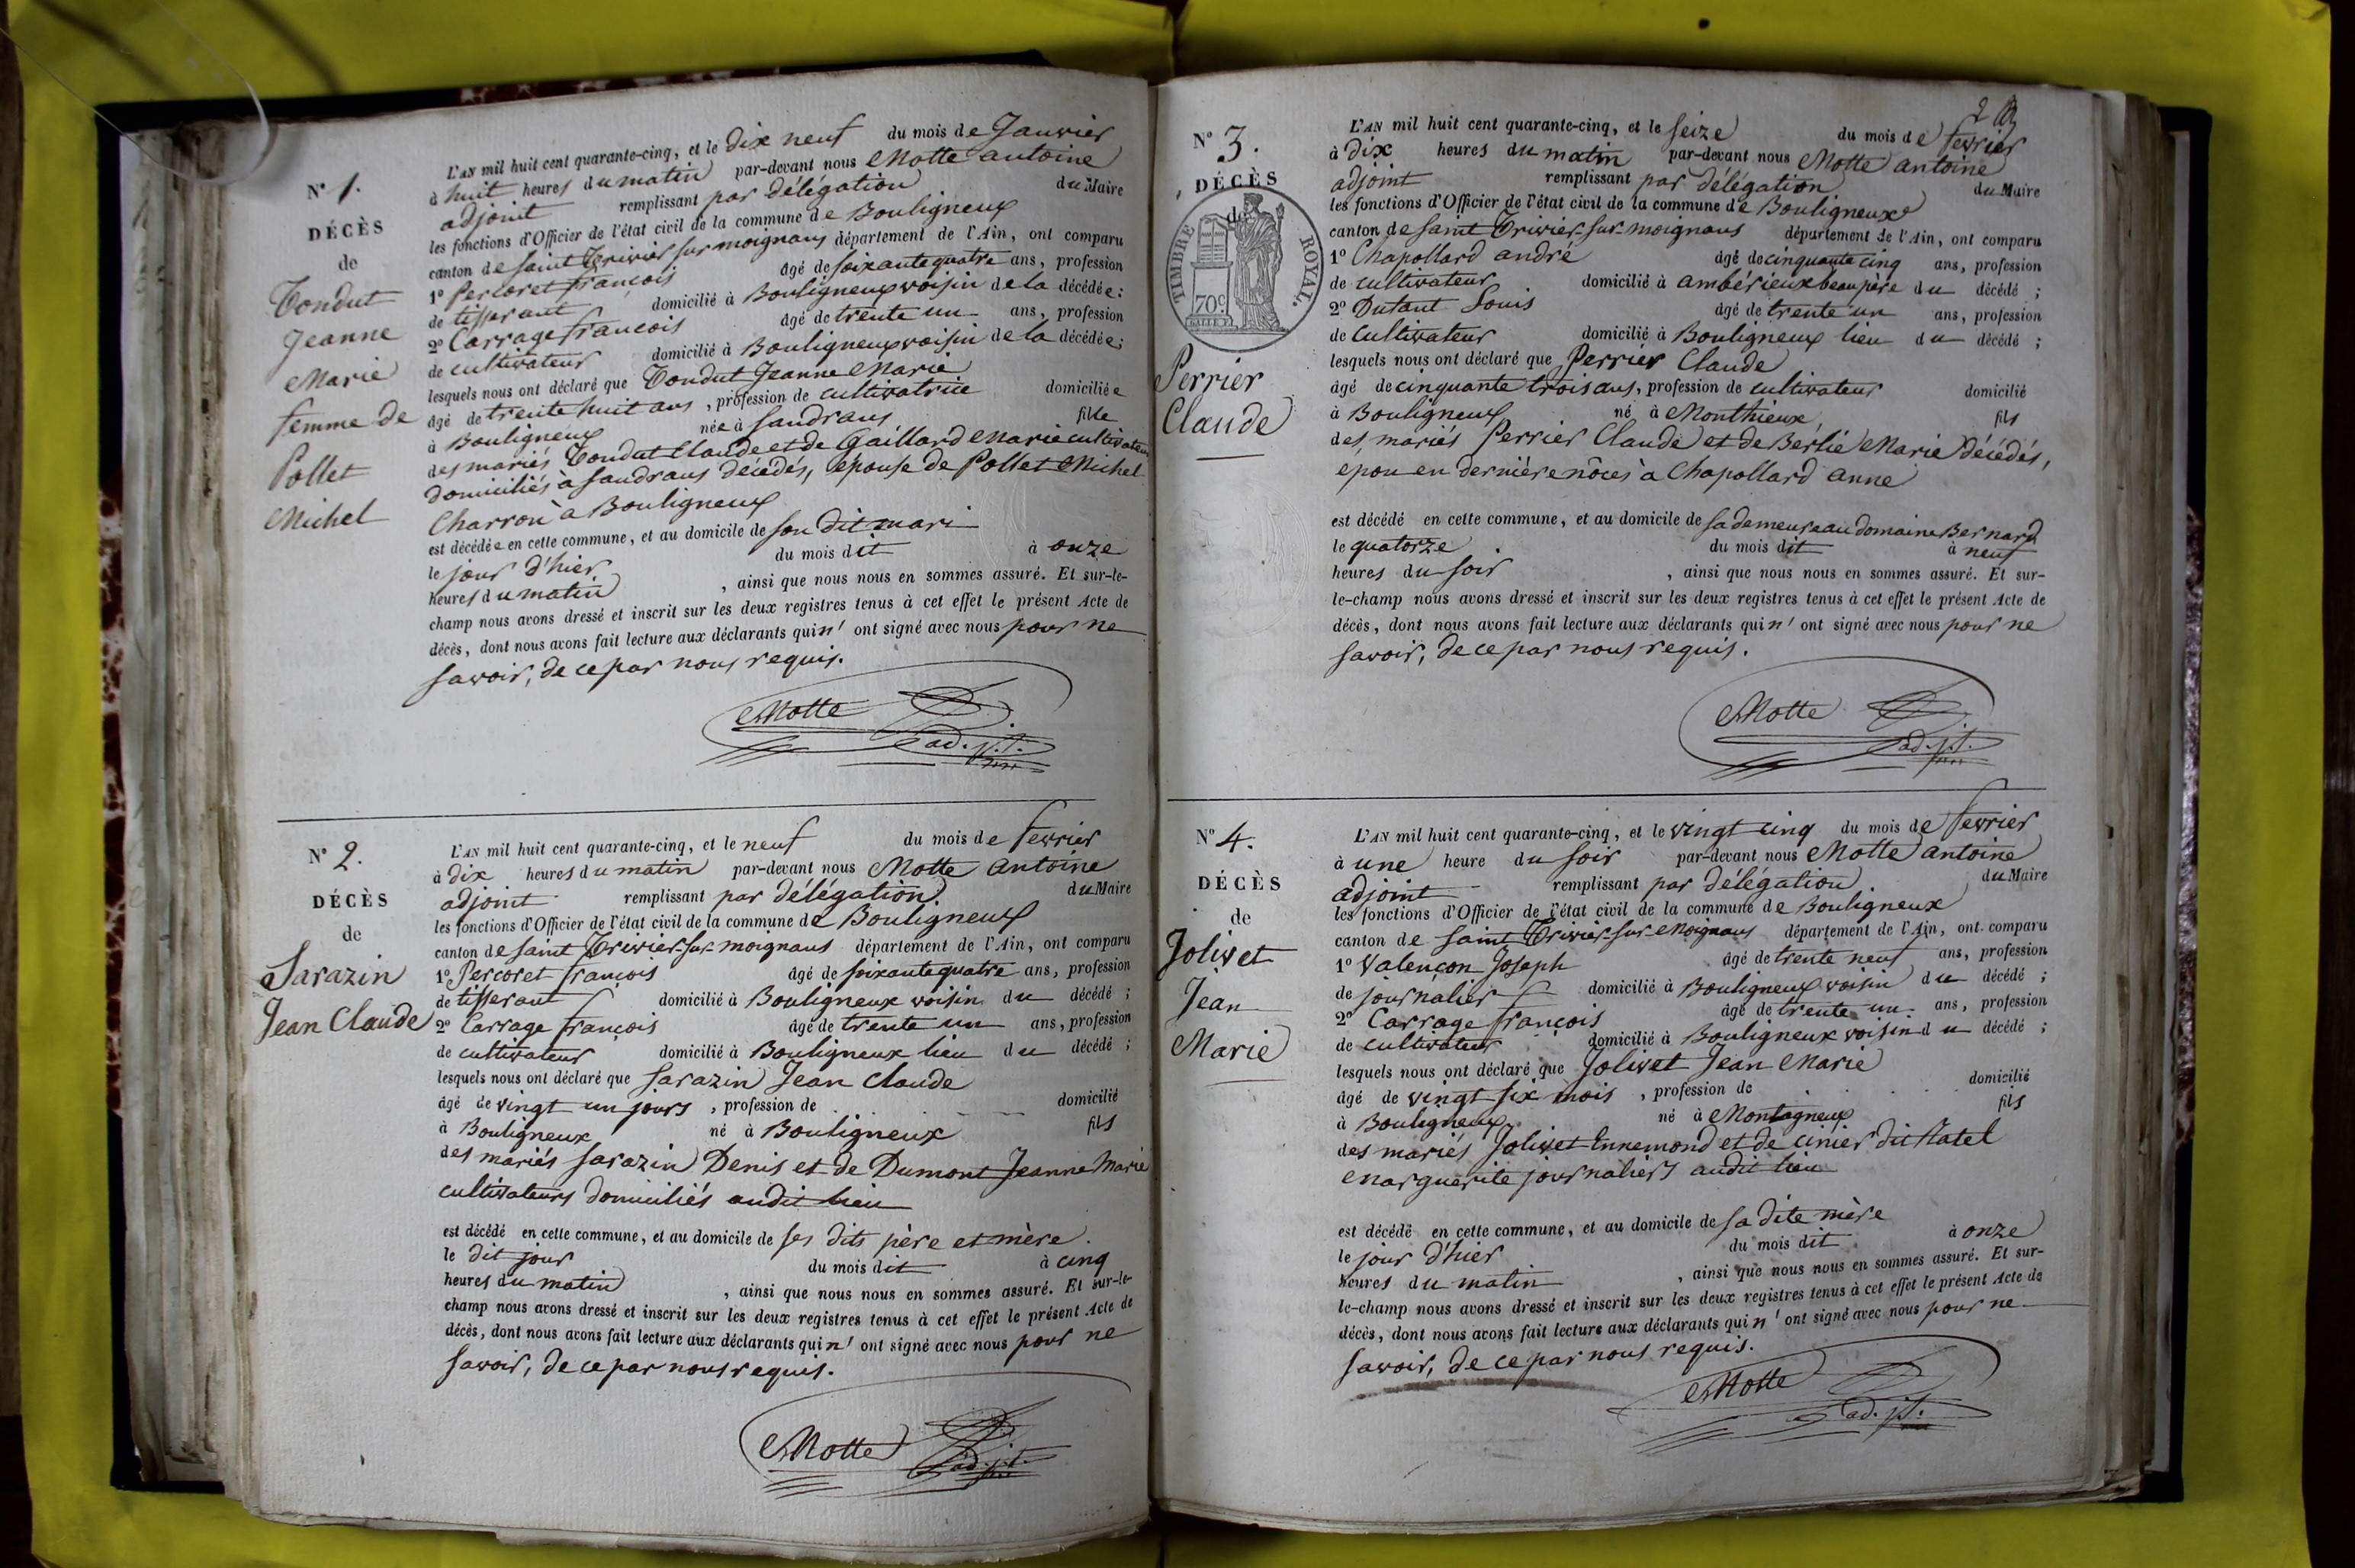 N° 1.
DÉCÈS
de
Tondut
Jeanne
Marie
femme de
Pollet
Michel
L'AN mil huit cent quarante-cinq, et le dix neuf du mois de Janvier
à huit heures du matin par-devant nous Motte antoine
adjoint remplissant par délégation du Maire
les fonctions d'Officier de l'état civil de la commune de Bouligneux
canton de saint Trivier sur moignans département de l'Ain, ont comparu
1° Percoret françois âgé de soixante quatre ans, profession
de tisserant domicilié à Bouligneux voisin de la décédée;
2° Carrage françois âgé de trente un ans, profession
de cultivateur domicilié à Bouligneux voisin de la décédée;
lesquels nous ont déclaré que Tondut Jeanne Marie
âgé de trente huit ans, profession de cultivatrice domiciliée
à Bouligneux née à Sandrans fille
des mariés Tondut Claude et de Gaillard Marie cultivateurs
domiciliés à Sandrans décédés, épouse de Pollet Michel
Charron à Bouligneux
est décédée en cette commune, et au domicile de son dit mari
le jour d'hier du mois dit à onze
heures du matin, ainsi que nous nous en sommes assuré. Et sur-le-
champ nous avons dressé et inscrit sur les deux registres tenus à cet effet le présent Acte de
décès, dont nous avons fait lecture aux déclarants qui n'ont signé avec nous pour ne
savoir, de ce par nous requis.
Motte
ad.j.t.
N° 2.
DÉCÈS
de
Sarazin
Jean Claude
L'AN mil huit cent quarante-cinq, et le neuf du mois de fevrier
à dix heures du matin par-devant nous Motte antoine
adjoint remplissant par délégation du Maire
les fonctions d'Officier de l'état civil de la commune de Bouligneux
canton de saint Trivier-sur-moignans département de l'Ain, ont comparu
1° Percoret françois âgé de soixante quatre ans, profession
de tisserant domicilié à Bouligneux voisin du décédé;
2° Carrage françois âgé de trente un ans, profession
de cultivateur domicilié à Bouligneux lieu du décédé;
lesquels nous ont déclaré que Sarazin Jean Claude
âgé de vingt un jours, profession de domicilié
à Bouligneux né à Bouligneux fils
des mariés Sarazin Denis et de Dumont Jeanne Marie
cultivateurs domiciliés audit lieu
est décédé en cette commune, et au domicile de ses dits père et mère.
le dit jour du mois dit à cinq
heures du matin, ainsi que nous nous en sommes assuré. Et sur-le-
champ nous avons dressé et inscrit sur les deux registres tenus à cet effet le présent Acte de
décès, dont nous avons fait lecture aux déclarants qui n'ont signé avec nous pour ne
savoir, de ce par nous requis.
Motte
ad.j.t.
2
N° 3.
DÉCÈS
de
TIMBRE ROYAL.
70c.
Perrier
Claude
L'AN mil huit cent quarante-cinq, et le seize du mois de fevrier
à dix heures du matin par-devant nous Motte antoine
adjoint remplissant par délégation du Maire
les fonctions d'Officier de l'état civil de la commune de Bouligneux
canton de saint Trivier-sur-moignans département de l'Ain, ont comparu
1° Chapollard andré âgé de cinquante cinq ans, profession
de cultivateur domicilié à ambérieux beau père du décédé;
2° Dutant Louis âgé de trente un ans, profession
de cultivateur domicilié à Bouligneux lieu du décédé;
lesquels nous ont déclaré que Perrier Claude
âgé de cinquante trois ans, profession de cultivateur domicilié
à Bouligneux né à Monthieux, fils
des mariés Perrier Claude et de Berlié Marie décédés,
epou en dernière nôces à Chapollard anne
est décédé en cette commune, et au domicile de sa demeure au domaine Bernard
le quatorze du mois dit à neuf
heures du soir, ainsi que nous nous en sommes assuré. Et sur-
le-champ nous avons dressé et inscrit sur les deux registres tenus à cet effet le présent Acte de
décès, dont nous avons fait lecture aux déclarants qui n'ont signé avec nous pour ne
savoir, de ce par nous requis.
Motte
ad.j.t.
N° 4.
DÉCÈS
de
Jolivet
Jean
Marie
L'AN mil huit cent quarante-cinq, et le vingt cinq du mois de fevrier
à une heure du soir par-devant nous Motte antoine
adjoint remplissant par délégation du Maire
les fonctions d'Officier de l'état civil de la commune de Bouligneux
canton de saint Trivier-sur-Moignans département de l'Ain, ont comparu
1° Valençon Joseph âgé de trente neuf ans, profession
de journalier domicilié à Bouligneux voisin du décédé;
2° Carrage françois âgé de trente un ans, profession
de cultivateur domicilié à Bouligneux voisin du décédé;
lesquels nous ont déclaré que Jolivet Jean Marie
âgé de vingt six mois, profession de domicilié
à Bouligneux né à Montagneux fils
des mariés Jolivet Ennemond et de Cinier dit Natel
Marguerite journaliers audit lieu
est décédé en cette commune, et au domicile de sa dite mère
le jour d'hier du mois dit à onze
heures du matin, ainsi que nous nous en sommes assuré. Et sur-
le-champ nous avons dressé et inscrit sur les deux registres tenus à cet effet le présent Acte de
décès, dont nous avons fait lecture aux déclarants qui n'ont signé avec nous pour ne
savoir, de ce par nous requis.
Motte
ad.j.t.